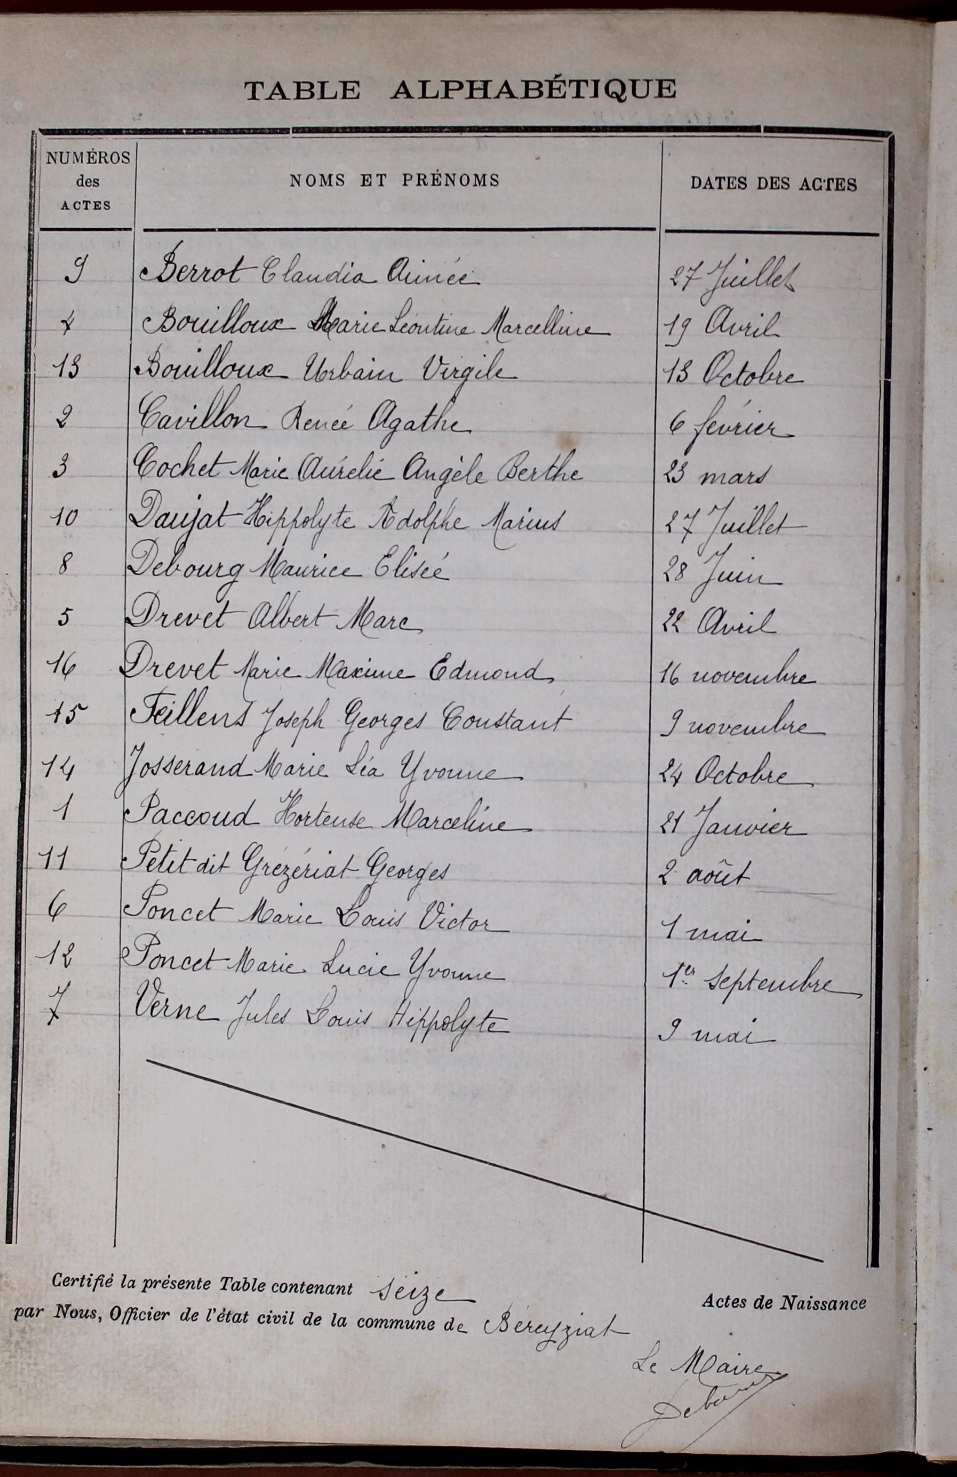 TABLE ALPHABÉTIQUE
NUMÉROS des ACTES NOMS ET PRÉNOMS DATES DES ACTES
9 Berrot Claudia Aimée 27 Juillet
4 Bouilloux Marie Léontine Marcelline 19 Avril
13 Bouilloux Urbain Virgile 13 Octobre
2 Cavillon Renée Agathe 6 février
3 Cochet Marie Aurélie Angèle Berthe 23 mars
10 Daujat Hippolyte Adolphe Marius 27 Juillet
8 Debourg Maurice Elisée 28 Juin
5 Drevet Albert Marc 22 Avril
16 Drevet Marie Maxime Edmond 16 novembre
15 Feillens Joseph Georges Constant 9 novembre
14 Josserand Marie Léa Yvonne 24 Octobre
1 Paccoud Hortense Marceline 21 Janvier
11 Petit dit Grézériat Georges 2 août
6 Poncet Marie Louis Victor 1 mai
12 Poncet Marie Lucie Yvonne 1er Septembre
7 Verne Jules Louis Hippolyte 9 mai
Certifié la présente Table contenant seize Actes de Naissance
par Nous, Officier de l'état civil de la commune de Béreyziat
Le Maire